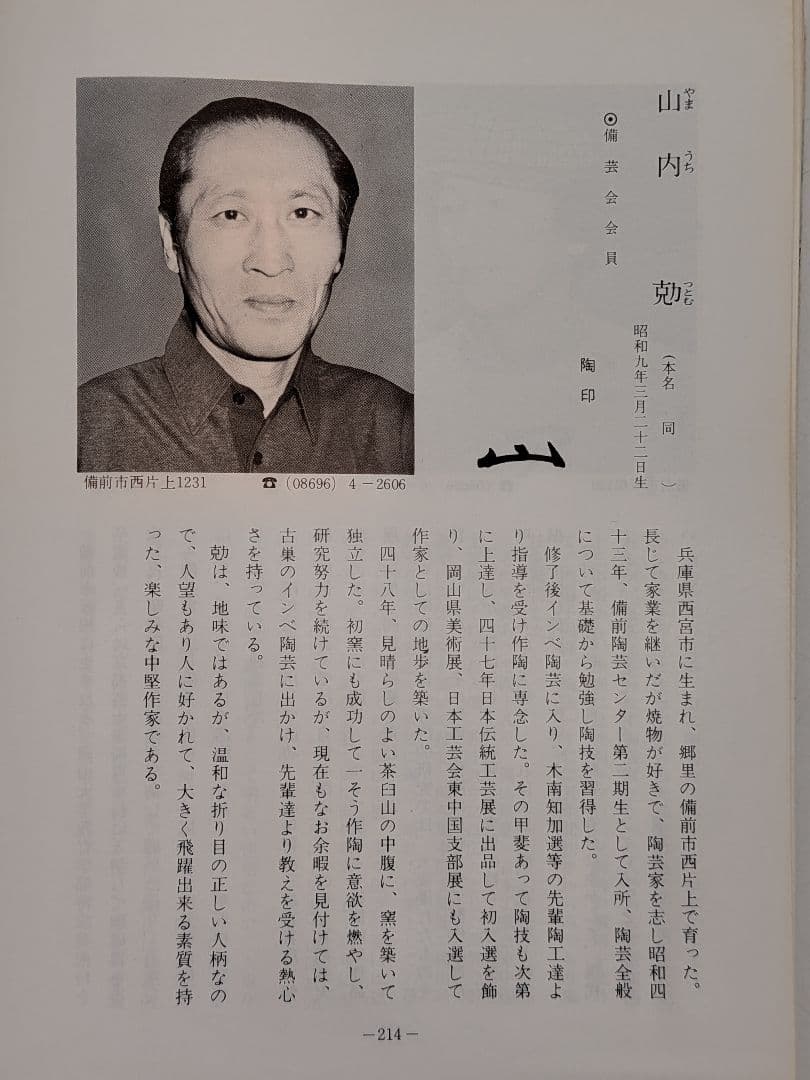 山内 勀
やま うち つとむ
(本名 同 )
昭和九年三月二十二日生
⦿備芸会会員
陶印
山
備前市西片上1231 ☎ (08696) 4-2606
兵庫県西宮市に生まれ、郷里の備前市西片上で育った。
長じて家業を継いだが焼物が好きで、陶芸家を志し昭和四
十三年、備前陶芸センター第二期生として入所、陶芸全般
について基礎から勉強し陶技を習得した。
修了後インベ陶芸に入り、木南知加選等の先輩陶工達よ
り指導を受け作陶に専念した。その甲斐あって陶技も次第
に上達し、四十七年日本伝統工芸展に出品して初入選を飾
り、岡山県美術展、日本工芸会東中国支部展にも入選して
作家としての地歩を築いた。
四十八年、見晴らしのよい茶臼山の中腹に、窯を築いて
独立した。初窯にも成功して一そう作陶に意欲を燃やし、
研究努力を続けているが、現在もなお余暇を見付けては、
古巣のインベ陶芸に出かけ、先輩達より教えを受ける熱心
さを持っている。
勀は、地味ではあるが、温和な折り目の正しい人柄なの
で、人望もあり人に好かれて、大きく飛躍出来る素質を持
った、楽しみな中堅作家である。
—214—